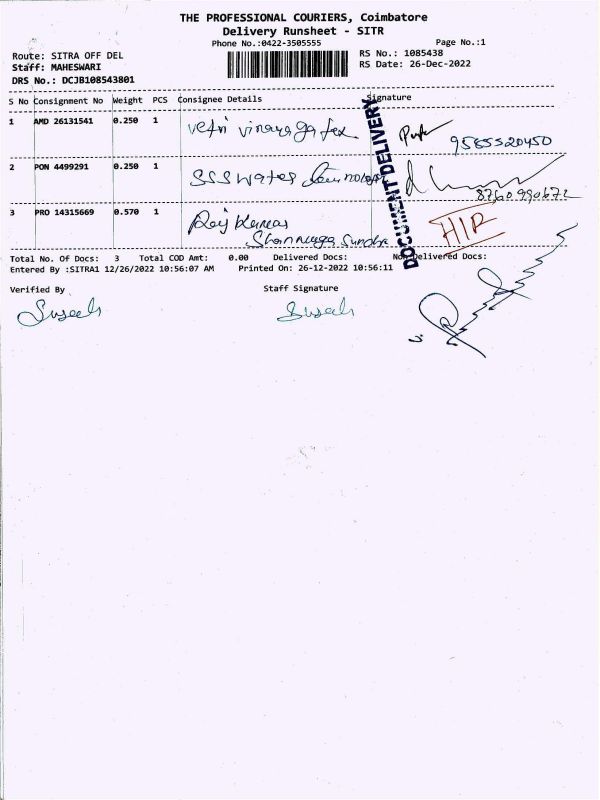 THE PROFESSIONAL COURIERS, Coimbatore
Delivery Runsheet - SITR
Phone No.:0422-3505555
Page No.:1
Route: SITRA OFF DEL
RS No.: 1085438
Staff: MAHESWARI
RS Date: 26-Dec-2022
DRS No.: DCJB108543801
S No Consignment No Weight PCS Consignee Details Signature
1 AMD 26131541 0.250 1 vetri vinayaga tex
9585520450
2 PON 4499291 0.250 1 SSS water
8760990672
3 PRO 14315669 0.570 1 Raj Kumar
Shanmuga Sundra
HIR
DOCUMENT DELIVERY
Total No. Of Docs: 3 Total COD Amt: 0.00 Delivered Docs: Non Delivered Docs:
Entered By :SITRA1 12/26/2022 10:56:07 AM Printed On: 26-12-2022 10:56:11
Verified By Staff Signature